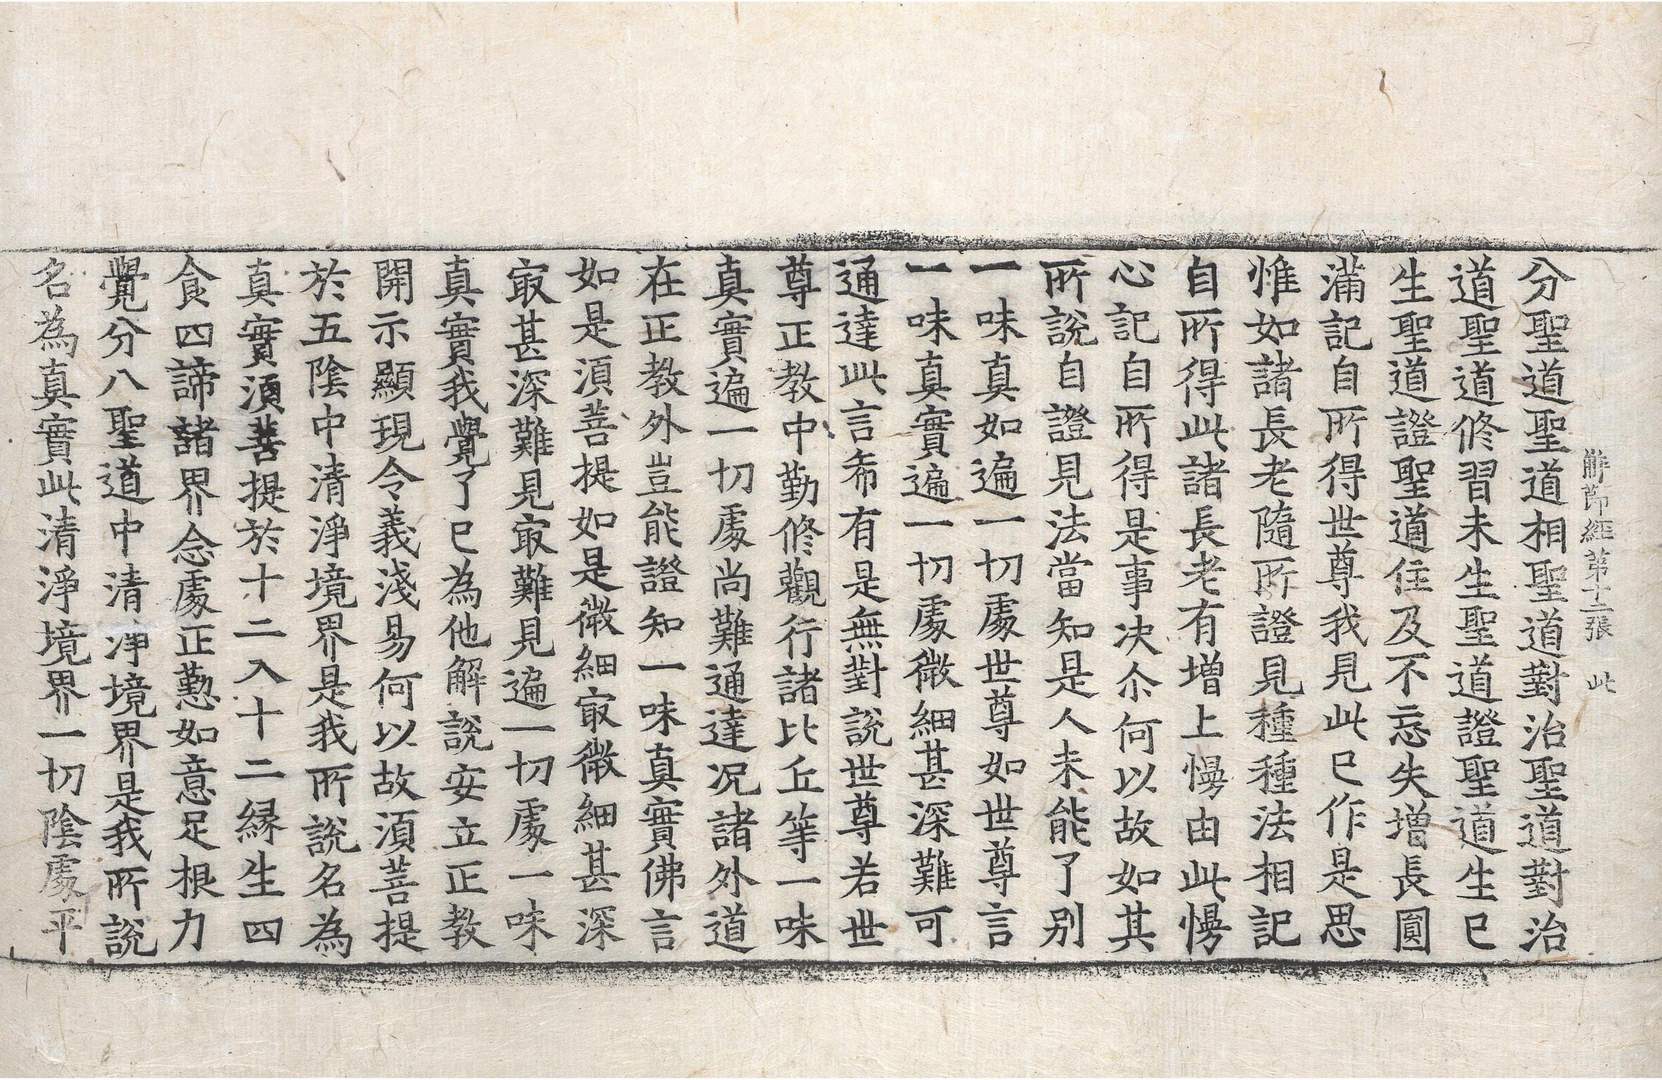 解節經第十二張 此
分聖道聖道相聖道對治聖道對治
道聖道修習未生聖道證聖道生已
生聖道證聖道住及不忘失增長圓
滿記自所得世尊我見此已作是思
惟如諸長老隨所證見種種法相記
自所得此諸長老有增上慢由此慢
心記自所得是事决尒何以故如其
所說自證見法當知是人未能了別
一味真如遍一切處世尊如世尊言
一味真實遍一切處微細甚深難可
通達此言希有是無對說世尊若世
尊正教中勤修觀行諸比丘等一味
真實遍一切處尚難通達况諸外道
在正教外豈能證知一味真實佛言
如是湏菩提如是微細㝡微細甚深
㝡甚深難見㝡難見遍一切處一味
真實我覺了已為他解說安立正教
開示顯現令義淺易何以故湏菩提
於五陰中清淨境界是我所說名為
真實湏菩提於十二入十二緣生四
食四諦諸界念處正懃如意足根力
覺分八聖道中清淨境界是我所說
名為真實此清淨境界一切陰處平